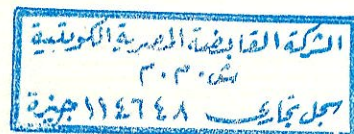 الشركة القابضة المصرية الكويتية
ش.م.م.
سجل تجارى ١١٤٦٤٨ جيزة